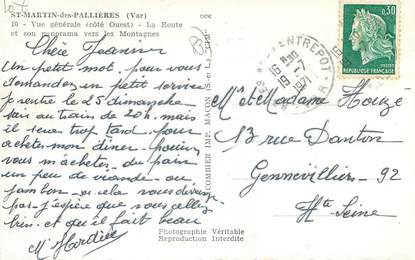 ST-MARTIN-des-PALLIERES (Var)
10 - Vue générale (côté Ouest) - La Route
et son panorama vers les Montagnes
Chère Jeanne
Un petit mot, pour vous
demander un petit service
je rentre le 25 dimanche
mais au train de 20h. mais
il sera trop tard pour
acheter mon diner. pouvez
vous m'acheter du pain
un peu de viande. ou
jambon si cela vous
pas j'espère que vous allez
bien. et qu'il fait beau
COMBIER IMP. MACON
Photographie Véritable
Reproduction Interdite
ENTREPOT
16 H30
19-7
1971
VAR
0,30
REPUBLIQUE FRANÇAISE
POSTES
Mr et Madame Houzé
13 rue Danton
Gennevilliers - 92
Hte Seine